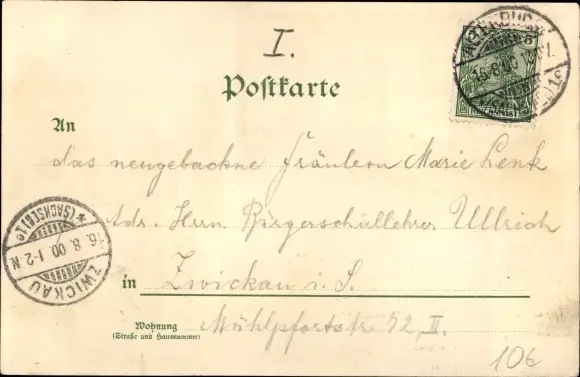 I.
Postkarte
An
das neugebackne Fräulein Marie Lenk
Adr. Herrn Bürgerschullehrer Ullrich
in Zwickau i. S.
Wohnung
(Straße und Hausnummer)
Mühlpfortstr. 72, II.
ZWICKAU
*(SACHSEN)1c
16.8.00.1-2N
16.8.00
10€